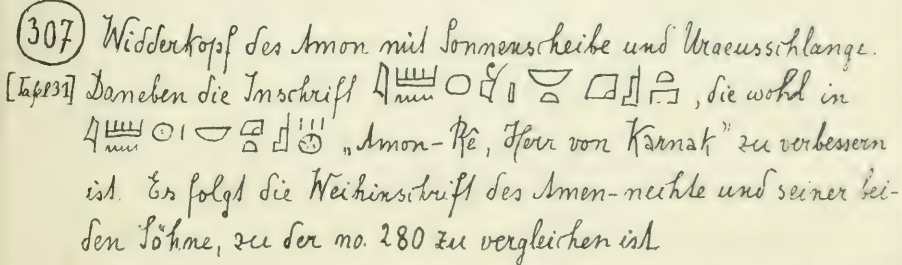 307 Widderkopf des Amon mit Sonnenscheibe und Uraeusschlange.
[Tafel 31] Daneben die Inschrift , die wohl in
„Amon-Rê, Herr von Karnak" zu verbessern
ist. Es folgt die Weihinschrift des Amen-nechte und seiner bei-
den Söhne, zu der no. 280 zu vergleichen ist